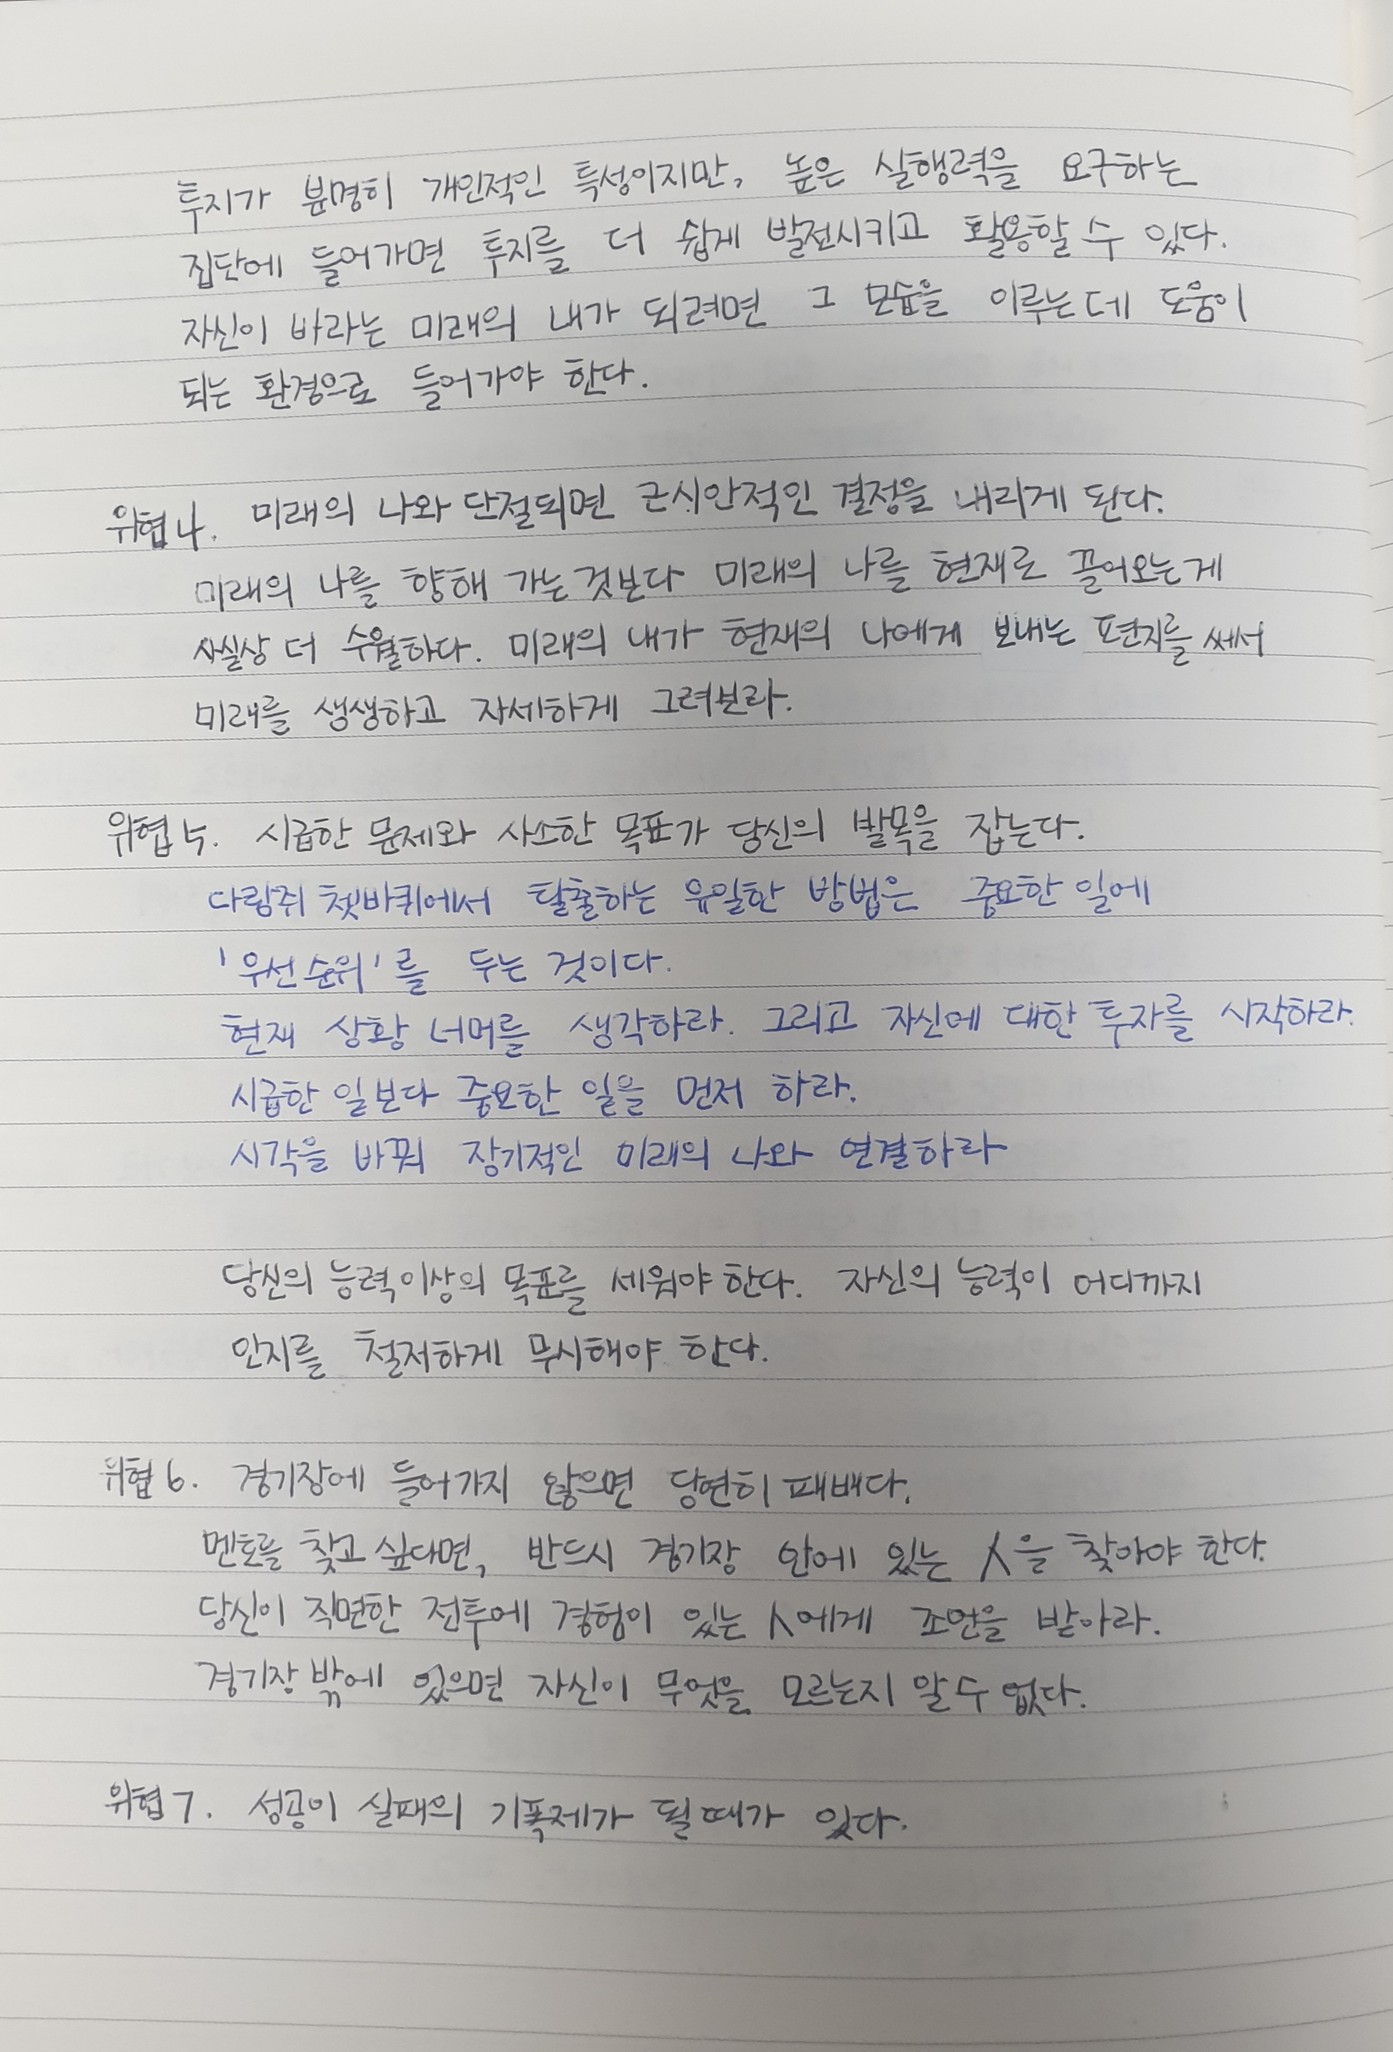 투지가 분명히 개인적인 특성이지만, 높은 실행력을 요구하는
집단에 들어가면 투지를 더 쉽게 발전시키고 활용할 수 있다.
자신이 바라는 미래의 내가 되려면 그 모습을 이루는데 도움이
되는 환경으로 들어가야 한다.
위협4. 미래의 나와 단절되면 근시안적인 결정을 내리게 된다.
미래의 나를 향해 가는 것보다 미래의 나를 현재로 끌어오는게
사실상 더 수월하다. 미래의 내가 현재의 나에게 보내는 편지를 써서
미래를 생생하고 자세하게 그려보라.
위협5. 시급한 문제와 사소한 목표가 당신의 발목을 잡는다.
다람쥐 쳇바퀴에서 탈출하는 유일한 방법은 중요한 일에
'우선순위'를 두는 것이다.
현재 상황 너머를 생각하라. 그리고 자신에 대한 투자를 시작하라.
시급한 일보다 중요한 일을 먼저 하라.
시각을 바꿔 장기적인 미래의 나와 연결하라
당신의 능력이상의 목표를 세워야 한다. 자신의 능력이 어디까지
인지를 철저하게 무시해야 한다.
위협6. 경기장에 들어가지 않으면 당연히 패배다.
멘토를 찾고 싶다면, 반드시 경기장 안에 있는 人을 찾아야 한다.
당신이 직면한 전투에 경험이 있는 人에게 조언을 받아라.
경기장 밖에 있으면 자신이 무엇을 모르는지 알 수 없다.
위협7. 성공이 실패의 기폭제가 될때가 있다.